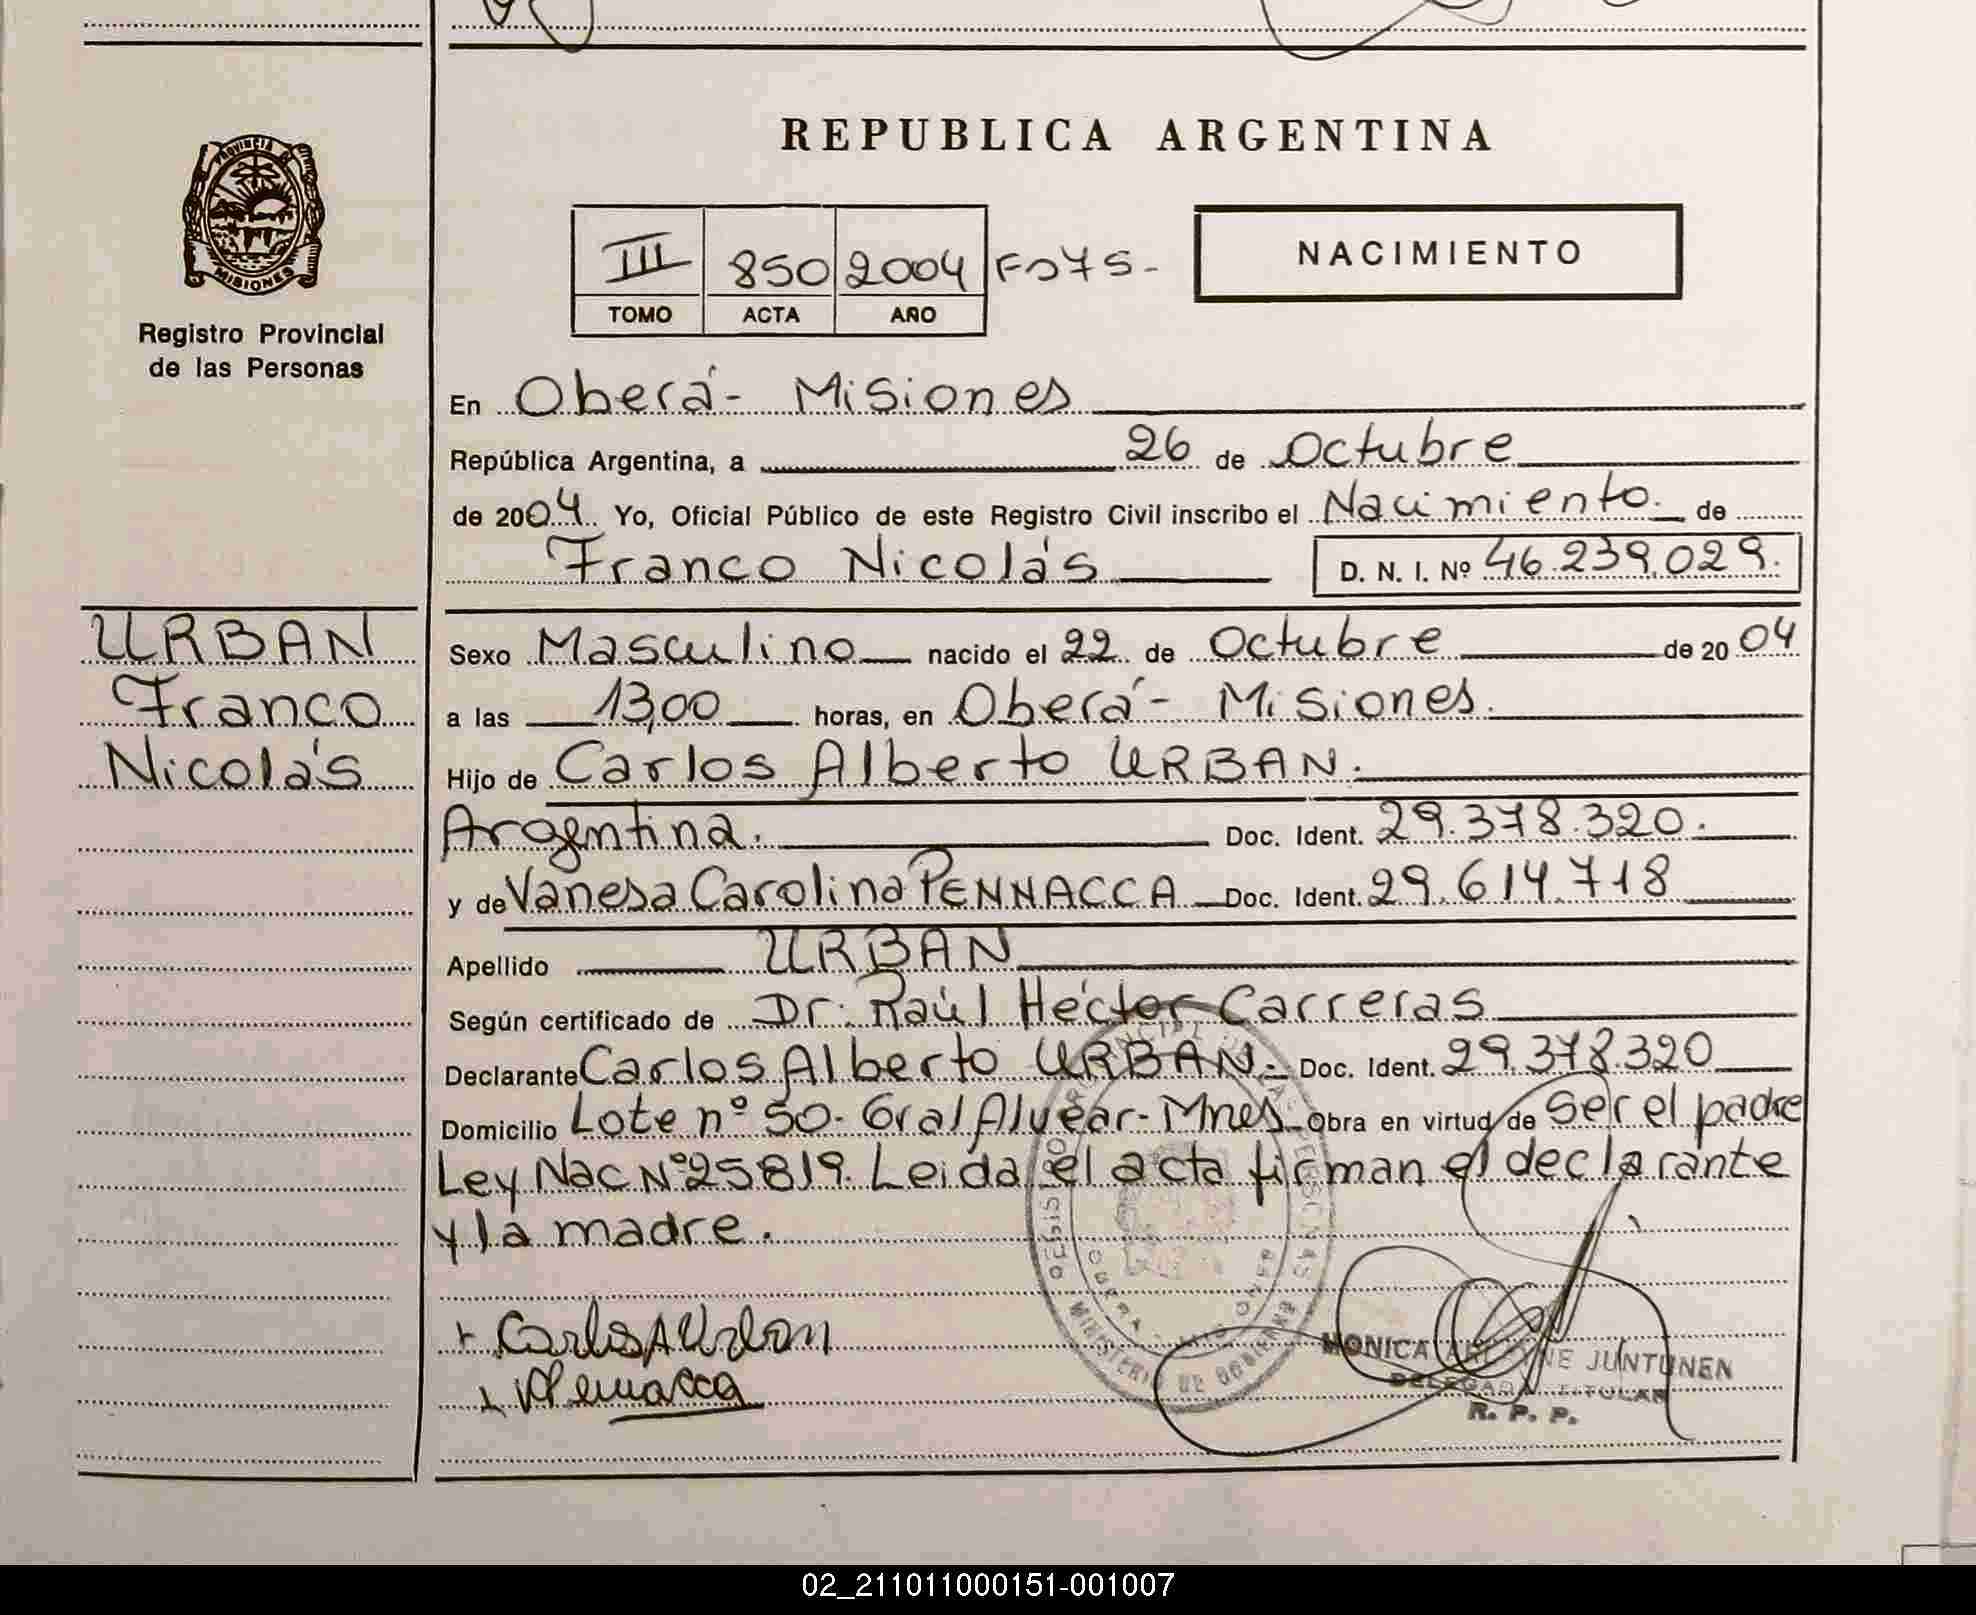 REPUBLICA ARGENTINA
PROVINCIA D
MISIONES
Registro Provincial
de las Personas
III 850 2004 Fo75-
TOMO ACTA AÑO
NACIMIENTO
En Oberá - Misiones
República Argentina, a 26 de Octubre
de 2004 Yo, Oficial Público de este Registro Civil inscribo el Nacimiento de
Franco Nicolás D. N. I. Nº 46.239.029.
URBAN
Franco
Nicolás
Sexo Masculino nacido el 22 de Octubre de 2004
a las 13,00 horas, en Oberá - Misiones.
Hijo de Carlos Alberto URBAN.
Argentina. Doc. Ident. 29.378.320.
y de Vanesa Carolina PENNACCA Doc. Ident. 29.614.718
Apellido URBAN
Según certificado de Dr. Raúl Héctor Carreras
Declarante Carlos Alberto URBAN.- Doc. Ident. 29.378.320
Domicilio Lote nº 50- Gral Alvear- Mnes Obra en virtud de Ser el padre
Ley Nac Nº 25819. Leida el acta firman el declarante
y la madre.
Carlos A Urban
VPennacca
MINISTERIO DE GOBIERNO
MONICA JUNTUNEN
DELEGADA TITULAR
R. P. P.
02_211011000151-001007